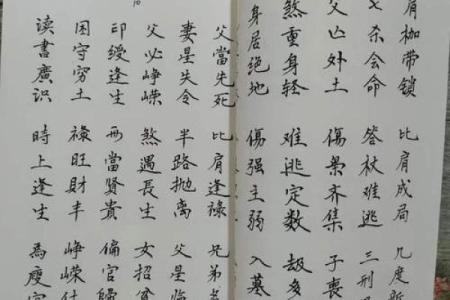 肩枷带锁 比肩成局 几度新
杀会命 笞杖难逃 三刑
父亡外土 伤枭齐集 子喪
煞重身轻 难逃定数 劫多
身居绝地 傷强主弱 入墓
父當先死 比肩逢禄 兄弟
妻星失令 半路抛离 父星临
父必峥嵘 煞遇長生 女招
印綬逢生 當贤貴 偏官歸
困守穷土 禄旺財丰 峥嵘仕
读書廣识 時上逢生 為